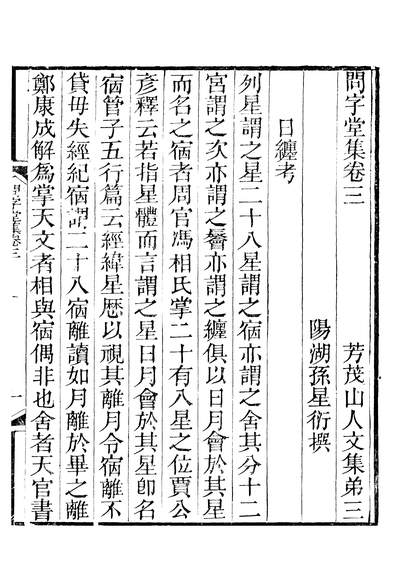 問字堂集卷三　芳茂山人文集弟三
陽湖孫星衍撰
日纏考
列星謂之星二十八星謂之宿亦謂之舍其分十二
宮謂之次亦謂之䢈亦謂之纏俱以日月會於其星
而名之宿者周官馮相氏掌二十有八星之位賈公
彥釋云若指星體而言謂之星日月會於其星卽名
宿管子五行篇云經緯星厯以視其離月令宿離不
貸毋失經紀宿謂二十八宿離讀如月離於畢之離
鄭康成解爲掌天文者相與宿偶非也舍者天官書
一